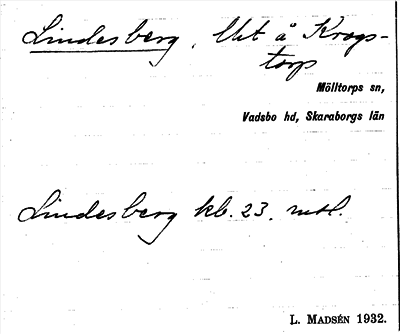 Lindesberg, Ukt å Krogs-
torp
Mölltorps sn,
Vadsbo hd, Skaraborgs län
Lindesberg kb. 23. mtl.
L. MADSÉN 1932.